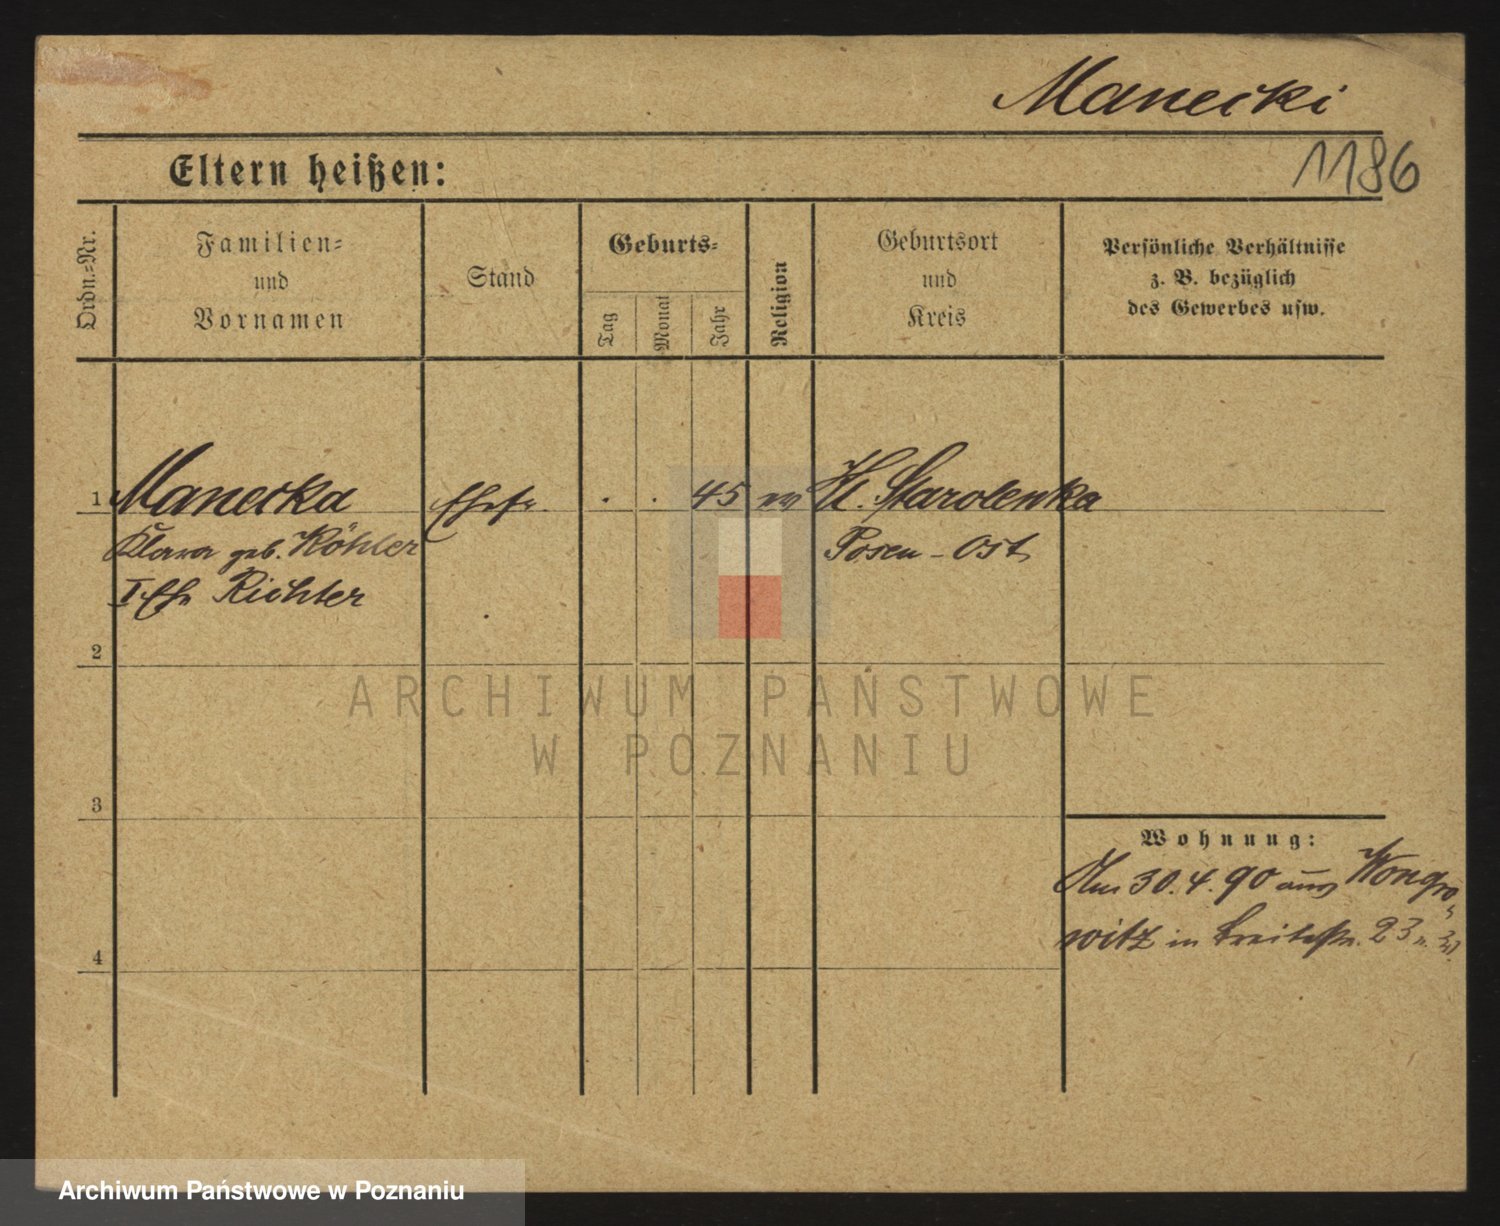 Manecki
1186
Eltern heißen:
Ordn.-Nr.
Familien-
und
Vornamen
Stand
Geburts-
Tag
Monat
Jahr
Religion
Geburtsort
und
Kreis
Persönliche Verhältnisse
z. B. bezüglich
des Gewerbes usw.
1 Manecka Ehefr. . . 45 ev Kl. Starolenka
Klara geb. Köhler Posen-Ost
I. Eh Richter
2
ARCHIWUM PAŃSTWOWE
W POZNANIU
3
Wohnung:
Am 30.4.90 aus Wongro-
witz in Breitestr. 23
4
Archiwum Państwowe w Poznaniu